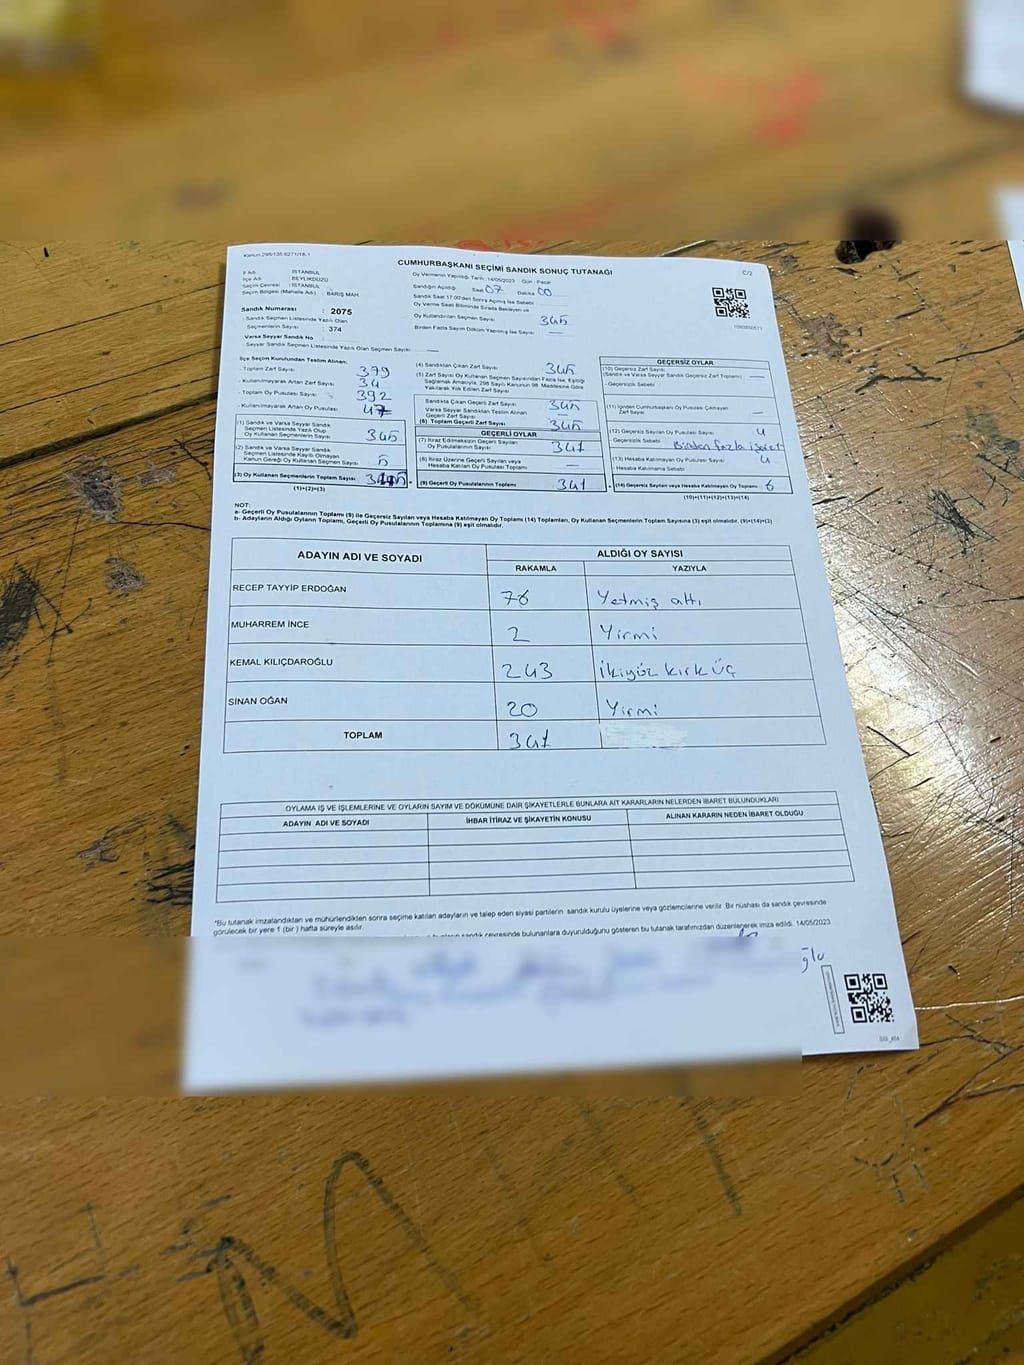 Kanun:298/105,6271/18.1
CUMHURBAŞKANI SEÇİMİ SANDIK SONUÇ TUTANAĞI
C/2
İl Adı : İSTANBUL
İlçe Adı : BEYLİKDÜZÜ
Seçim Çevresi : İSTANBUL
Seçim Bölgesi (Mahalle Adı) : BARIŞ MAH.
Sandık Numarası : 2075
Sandık Seçmen Listesinde Yazılı Olan
Seçmenlerin Sayısı : 374
Varsa Seyyar Sandık No
Seyyar Sandık Seçmen Listesinde Yazılı Olan Seçmen Sayısı : —
Oy Vermenin Yapıldığı Tarih: 14/05/2023 Gün : Pazar
Sandığın Açıldığı Saat 07 Dakika 00
Sandık Saat 17.00'den Sonra Açılmış İse Sebebi
Oy Verme Saati Bitiminde Sırada Bekleyen ve
Oy Kullandırılan Seçmen Sayısı 345
Birden Fazla Sayım Döküm Yapılmış İse Sayısı —
İlçe Seçim Kurulundan Teslim Alınan;
- Toplam Zarf Sayısı 379
- Kullanılmayarak Artan Zarf Sayısı 34
- Toplam Oy Pusulası Sayısı 392
- Kullanılmayarak Artan Oy Pusulası 47
(1) Sandık ve Varsa Seyyar Sandık
Seçmen Listesinde Yazılı Olup
Oy Kullanan Seçmenlerin Sayısı 345
(2) Sandık ve Varsa Seyyar Sandık
Seçmen Listesinde Kayıtlı Olmayan
Kanun Gereği Oy Kullanan Seçmen Sayısı
(3) Oy Kullanan Seçmenlerin Toplam Sayısı
(1)+(2)=(3)
(4) Sandıktan Çıkan Zarf Sayısı 345
(5) Zarf Sayısı Oy Kullanan Seçmen Sayısından Fazla İse, Eşitliği
Sağlamak Amacıyla, 298 Sayılı Kanunun 98. Maddesine Göre
Yakılarak Yok Edilen Zarf Sayısı
Sandıkta Çıkan Geçerli Zarf Sayısı 345
Varsa Seyyar Sandıktan Teslim Alınan
Geçerli Zarf Sayısı —
(6) Toplam Geçerli Zarf Sayısı 345
GEÇERLİ OYLAR
(7) İtiraz Edilmeksizin Geçerli Sayılan
Oy Pusulalarının Sayısı 341
(8) İtiraz Üzerine Geçerli Sayılan veya
Hesaba Katılan Oy Pusulası Toplamı —
(9) Geçerli Oy Pusulalarının Toplamı 341
GEÇERSİZ OYLAR
(10) Geçersiz Zarf Sayısı
(Sandık ve Varsa Seyyar Sandık Geçersiz Zarf Toplamı) —
- Geçersizlik Sebebi
(11) İçinden Cumhurbaşkanı Oy Pusulası Çıkmayan
Zarf Sayısı —
(12) Geçersiz Sayılan Oy Pusulası Sayısı 4
- Geçersizlik Sebebi Birden fazla işaret
(13) Hesaba Katılmayan Oy Pusulası Sayısı 4
Hesaba Katılmama Sebebi
(14) Geçersiz Sayılan veya Hesaba Katılmayan Oy Toplamı 6
(10)+(11)+(12)+(13)=(14)
NOT:
a- Geçerli Oy Pusulalarının Toplamı (9) ile Geçersiz Sayılan veya Hesaba Katılmayan Oy Toplamı (14) Toplamları, Oy Kullanan Seçmenlerin Toplam Sayısına (3) eşit olmalıdır. (9)+(14)=(3)
b- Adayların Aldığı Oyların Toplamı, Geçerli Oy Pusulalarının Toplamına (9) eşit olmalıdır.
ADAYIN ADI VE SOYADI ALDIĞI OY SAYISI
RAKAMLA YAZIYLA
RECEP TAYYİP ERDOĞAN 76 Yetmiş altı
MUHARREM İNCE 2 Yirmi
KEMAL KILIÇDAROĞLU 243 İkiyüz kırk Üç
SİNAN OĞAN 20 Yirmi
TOPLAM 341
OYLAMA İŞ VE İŞLEMLERİNE VE OYLARIN SAYIM VE DÖKÜMÜNE DAİR ŞİKAYETLERLE BUNLARA AİT KARARLARIN NELERDEN İBARET BULUNDUKLARI
ADAYIN ADI VE SOYADI İHBAR İTİRAZ VE ŞİKAYETİN KONUSU ALINAN KARARIN NEDEN İBARET OLDUĞU
*Bu tutanak imzalandıktan ve mühürlendikten sonra seçime katılan adayların ve talep eden siyasi partilerin sandık kurulu üyelerine veya gözlemcilerine verilir. Bir nüshası da sandık çevresinde
görülecek bir yere 1 (bir) hafta süreyle asılır.
sandık çevresinde bulunanlara duyurulduğunu gösteren bu tutanak tarafımızdan düzenlenerek imza edildi. 14/05/2023